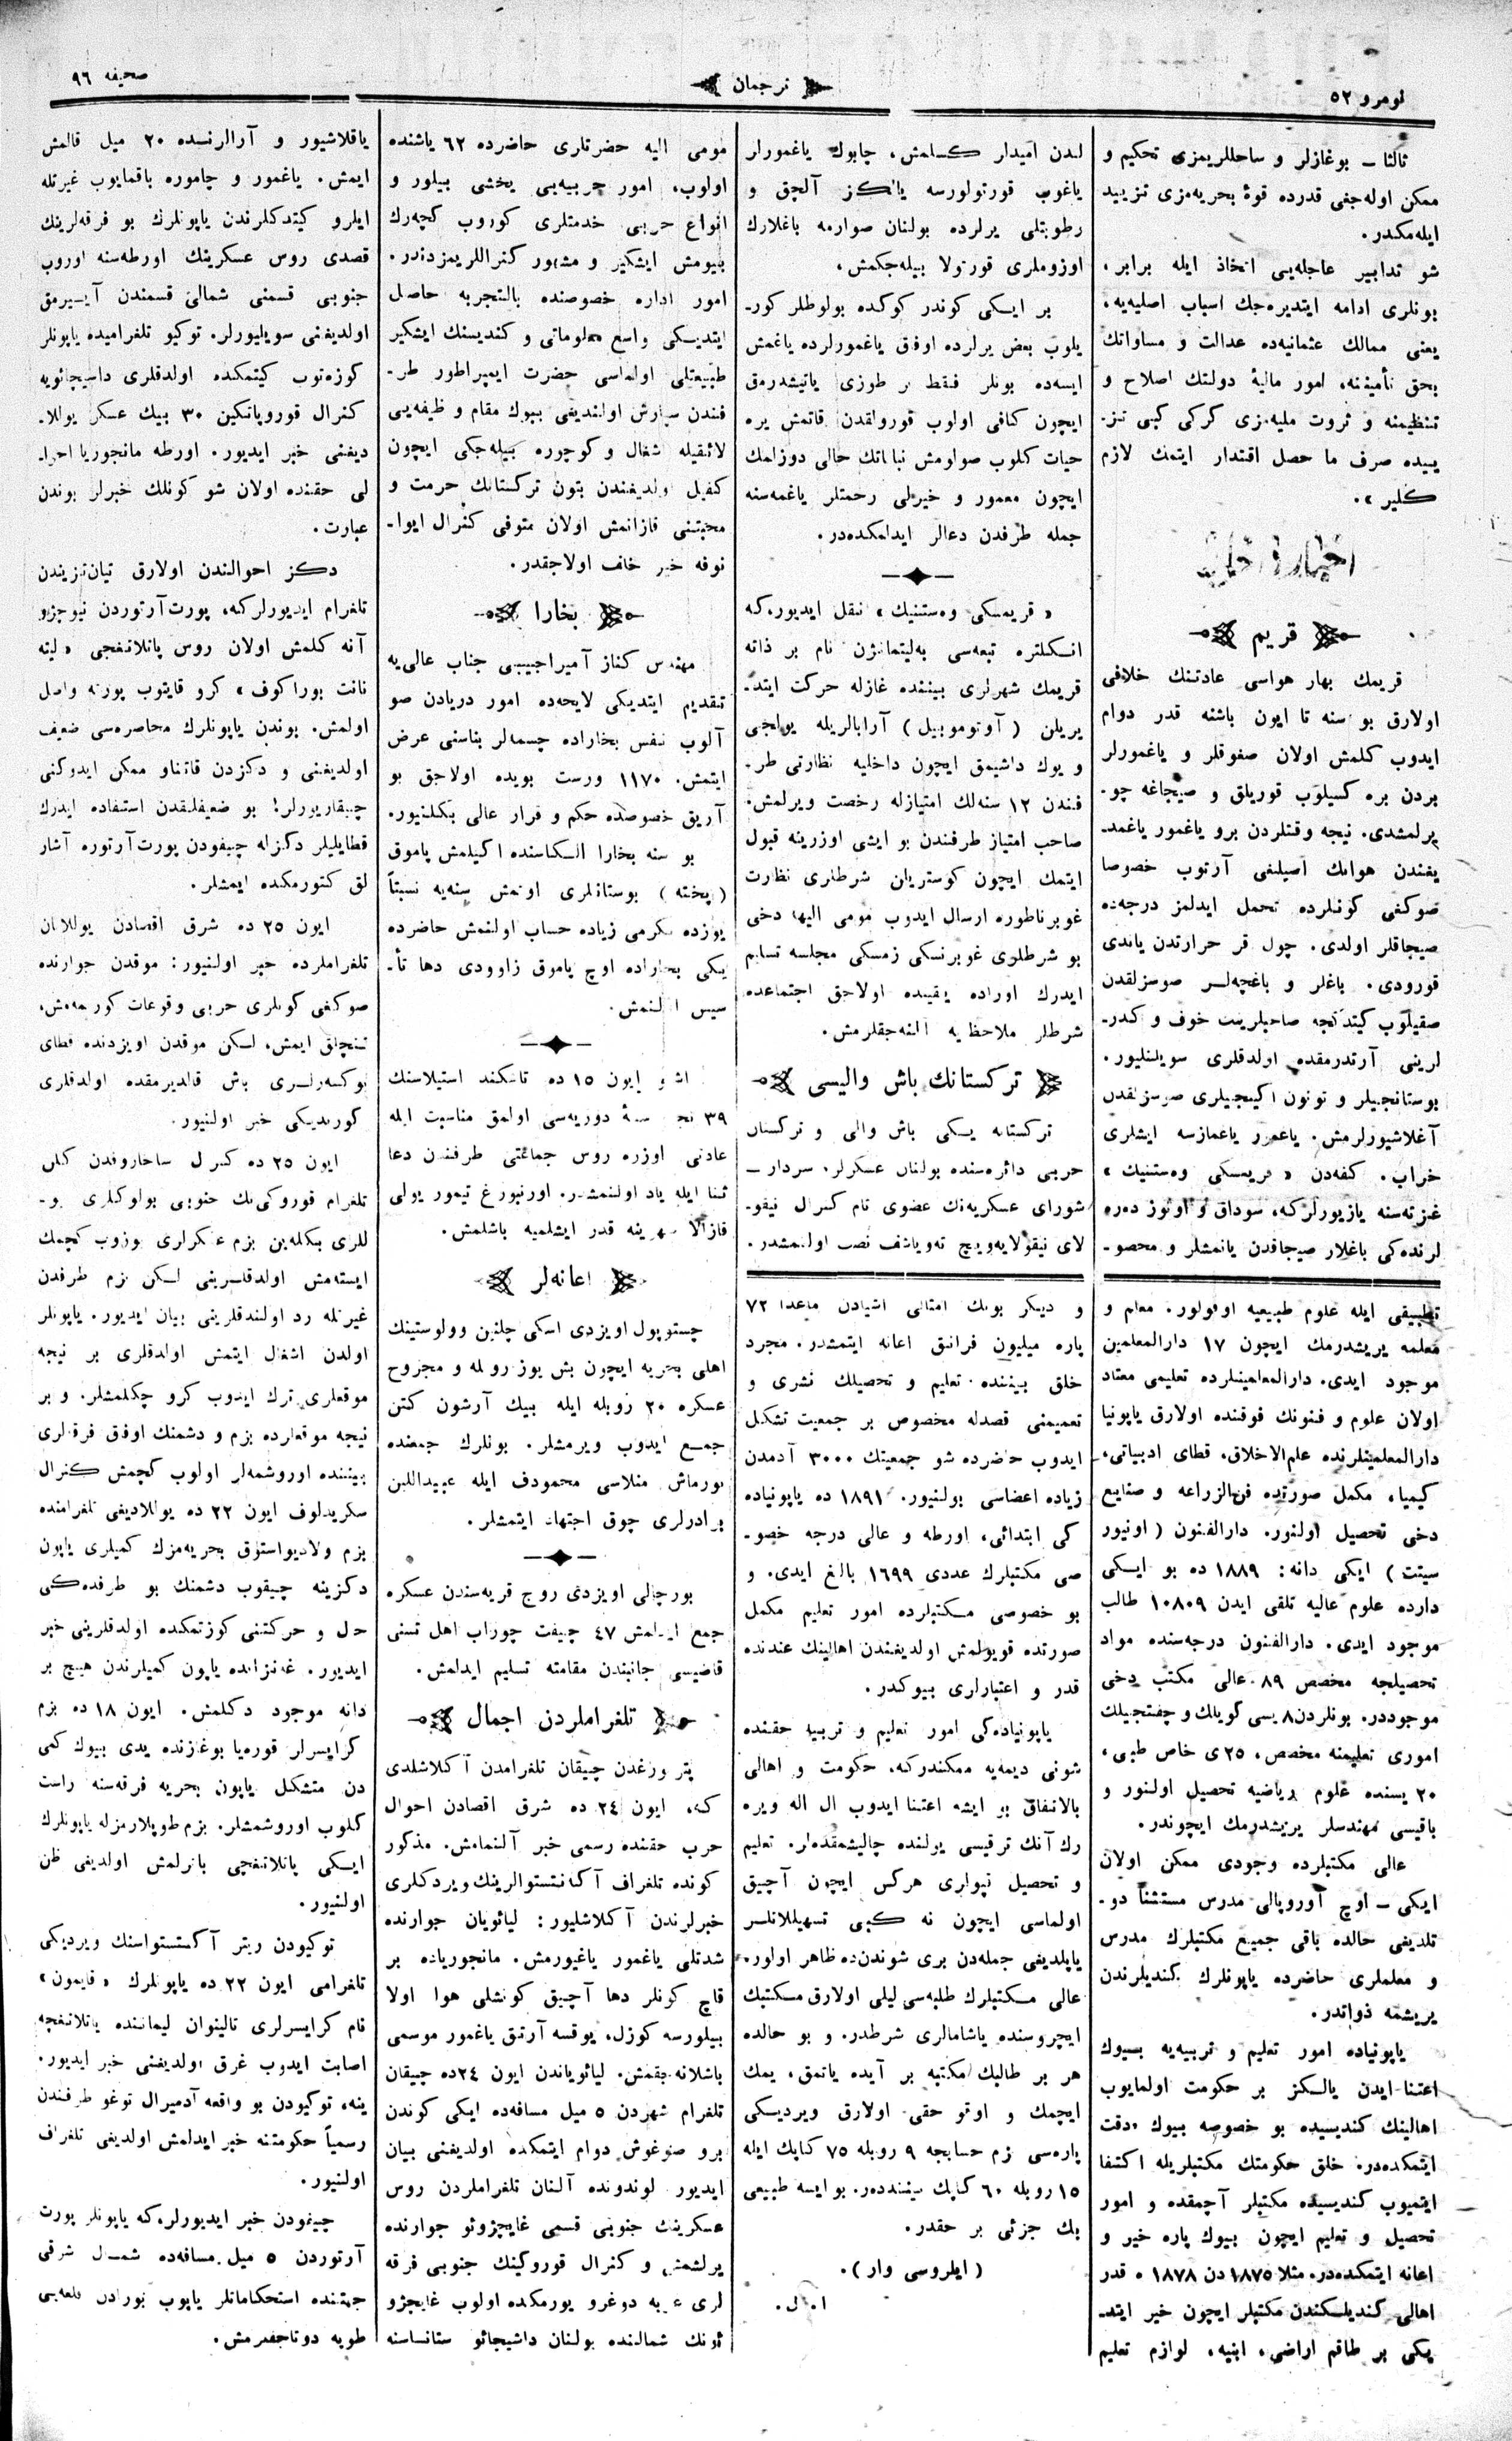 نومرو ٥٢
ترجمان
صحیفه ٩٦
ثالثا – بوغازلر و ساحللریمزی تحکیم و
ممکن اوله‌جغی قدرده قوۀ بحریه‌مزی تزیید
ایله‌مکدر.
شو تدابیر عاجله‌یی اتخاذ ایله برابر،
بونلری ادامه ایتدیره‌جك اسباب اصلیه‌یه،
یعنی ممالك عثمانیه‌ده عدالت و مساواتك
بحق تأمیننه، امور مالیۀ دولتك اصلاح و
تنظیمنه و ثروت ملیه‌مزی کرکی کبی تز-
ییده صرف ما حصل اقتدار ایتمك لازم
کلیر».
قریم
قریمك بهار هواسی عادتنك خلافی
اولارق بو سنه تا ایون باشنه قدر دوام
ایدوب کلمش اولان صغوقلر و یاغمورلر
بردن بره کسیلوب قوریلق و صیجاغه چو-
یرلمشدی. نیجه وقتلردن برو یاغمور یاغمد-
یغندن هوانك اسیلغی آرتوب خصوصا
صوکغی کونلرده تحمل ایدلمز درجه‌ده
صیجاقلر اولدی. چول قر حرارتدن یاندی
قورودی. باغلر و باغچه‌لر صوسزلقدن
صقیلوب کیتدکجه صاحبلرینك خوف و کدر-
لرینی آرتدرمقده اولدقلری سویلنیور.
بوستانجیلر و توتون اکیجیلری صوسزلقدن
آغلاشیورلرمش. یاغمور یاغمازسه ایشلری
خراب. کفه‌دن «قریمسکی وه‌ستنیك»
غزته‌سنه یازیورلرکه، سوداق و اوتوز دره
لرنده‌کی باغلار صیجاقدن یانمشلر و محصو-
تطبیقی ایله علوم طبیعیه اوقولور. معلم و
معلمه یریشدرمك ایچون ١٧ دارالمعلمین
موجود ایدی. دارالمعلمینلرده تعلیمی معتاد
اولان علوم و فنونك فوقنده اولارق یاپونیا
دارالمعلمینلرنده علم‌الاخلاق، قطای ادبیاتی،
کیمیا، مکمل صورتده فن‌الزراعه و صنایع
دخی تحصیل اولنور. دارالفنون (اونیور
سیتت) ایکی دانه: ١٨٨٩ ده بو ایکی
دارده علوم عالیه تلقی ایدن ١٠٨٠٩ طالب
موجود ایدی. دارالفنون درجه‌سنده مواد
تحصیلجه مخصص ٨٩ عالی مکتب دخی
موجوددر. بونلردن ٨ یسی کویلك و چفتجیلك
اموری تعلیمنه مخصص، ٢٥ی خاص طبی،
٢٠ یسنده علوم ریاضیه تحصیل اولنور و
باقیسی مهندسلر یریشدرمك ایچوندر.
عالی مکتبلرده وجودی ممکن اولان
ایکی – اوچ اوروپالی مدرس مستثنا دو-
تلدیغی حالده باقی جمیع مکتبلرك مدرس
و معلملری حاضرده یاپونلرك کندیلرندن
یریشمه ذواتدر.
یاپونیاده امور تعلیم و تربیه‌یه بیوك
اعتنا ایدن یالکز بر حکومت اولمایوب
اهالینك کندیسیده بو خصوصه بیوك دقت
ایتمکده‌در. خلق حکومتك مکتبلریله اکتفا
ایتمیوب کندیسیده مکتبلر آچمقده و امور
تحصیل و تعلیم ایچون بیوك پاره خیر و
اعانه ایتمکده‌در. مثلا ١٨٧٥ دن ١٨٧٨ ه قدر
اهالی کندیلکندن مکتبلر ایچون خیر ایتد-
یکی بر طاقم اراضی، ابنیه، لوازم تعلیم
لدن امیدلر کسلمش، چابوك یاغمورلر
یاغوب قورتولورسه یالکز آلچق و
رطوبتلی یرلرده بولنان صوارمه باغلارك
اوزوملری قورتولا بیله‌جکمش.
بر ایکی کوندر کوکده بولوطلر کور-
یلوب بعض یرلرده اوفاق یاغمورلرده یاغمش
ایسه‌ده بونلر فقط طوزی یاتیشدرمق
ایچون کافی اولوب قورولقدن قاتمش یره
حیات کلوب صواومش نباتاتك حالی دوزلمك
ایچون معمور و خیرلی رحمتلر یاغمه‌سنه
جمله طرفدن دعالر ایدلمکده‌در.
«قریمسکی وه‌ستنیك» نقل ایدیورکه
انکلتره تبعه‌سی به‌لیتمانژن نام بر ذاته
قریمك شهرلری بیننده غازله حرکت ایتد-
یریلن (آوتوموبیل) آرابالریله یولجی
و یوك داشیمق ایچون داخلیه نظارتی طر-
فندن ١٢ سنه‌لك امتیازله رخصت ویرلمش.
صاحب امتیاز طرفندن بو ایشی اوزرینه قبول
ایتمك ایچون کوستریلن شرطلری نظارت
غوبرناطوره ارسال ایدوب مومی الیها دخی
بو شرطلری غوبرنسکی زمسکی مجلسه تسلیم
ایدرك اوراده یقینده اولاجق اجتماعده
شرطلر ملاحظه‌یه آلنه‌جقلرمش.
ترکستانك باش والیسی
ترکستانه یکی باش والی و ترکستان
حربی دائره‌سنده بولنان عسکرلره سردار –
شورای عسکریه‌نك عضوی نام کنرال نیقو-
لای نیقولایه‌ویچ ته‌ویاشف نصب اولنمشدر.
و دیکر بونك امثالی اشیادن ماعدا ٧٢
پاره میلیون فرانق اعانه ایتمشدر. مجرد
خلق بیننده تعلیم و تحصیلك نشری و
تعمیمنی قصدله مخصوص بر جمعیت تشکیل
ایدوب حاضرده شو جمعیتك ٣٠٠٠ آدمدن
زیاده اعضاسی بولنیور. ١٨٩١ ده یاپونیاده
کی ابتدائی، اورطه و عالی درجه خصو-
صی مکتبلرك عددی ١٦٩٩ بالغ ایدی. و
بو خصوصی مکتبلرده امور تعلیم مکمل
صورتده قویولمش اولدیغندن اهالینك عندنده
قدر و اعتبارلری بیوکدر.
یاپونیاده‌کی امور تعلیم و تربیه حقنده
شونی دیمه‌یه ممکندرکه، حکومت و اهالی
بالاتفاق بو ایشه اعتنا ایدوب ال اله ویره
رك آنك ترقیسی یولنده چالیشمقده‌لر. تعلیم
و تحصیل قپولری هرکس ایچون آچیق
اولماسی ایچون نه کبی تسهیللاتلر
یاپلدیغی جمله‌دن بری شوندن‌ده ظاهر اولور.
عالی مکتبلرك طلبه‌سی لیلی اولارق مکتبك
ایچروسنده یاشامالری شرطدر. و بو حالده
هر بر طالبك مکتبه بر آیده یاتمق، یمك
ایچمك و اوتو حقی اولارق ویردیکی
پاره‌سی بزم حسابجه ٩ روبله ٧٥ کاپك ایله
١٥ روبله ٦٠ کاپك بیننده‌در. بو ایسه طبیعی
پك جزئی بر حقدر.
(ایلروسی وار).
مومی الیه حضرتلری حاضرده ٦٢ یاشنده
اولوب، امور حربیه‌یی یخشی بیلور و
انواع حربی خدمتلری کوروب کچه‌رك
بیومش ایشکیر و مشهور کنراللریمزدندر.
امور اداره خصوصنده بالتجربه حاصل
ایتدیکی واسع معلوماتی و کندیسنك ایشکیر
طبیعتلی اولماسی حضرت ایمپراطور طر-
فندن سپارش اولندیغی بیوك مقام و وظیفه‌یی
لائقیله اشغال و کوچوره بیله‌جکی ایچون
کفیل اولدیغندن بتون ترکستانك حرمت و
محبتنی قازانمش اولان متوفی کنرال ایوا-
نوفه خیر خلف اولاجقدر.
بخارا
مهندس کناز آمیراجیبی جناب عالی‌یه
تقدیم ایتدیکی لایحه‌ده امور دریادن صو
آلوب نفس بخاراده چسمه‌لر بناسنی عرض
ایتمش. ١١٧٠ ورست بویده اولاجق بو
آریق خصوصنده حکم و قرار عالی بکلنیور.
بو سنه بخارا اولکاسنده اکیلمش پاموق
(پخته) بوستانلری اوتمش سنه‌یه نسبتاً
یوزده یکرمی زیاده حساب اولنمش حاضرده
یکی بخاراده اوچ پاموق زاوودی دها تأ-
سیس اولنمش.
اشبو ایون ١٥ ده تاشکند استیلاسنك
٣٩ نجی سنۀ دوریه‌سی اولمق مناسبت ایله
عادتی اوزره روس جماعتی طرفندن دعا
ثنا ایله یاد اولنمشدر. اورنبورغ تیمور یولی
قازالا شهرینه قدر ایشلمیه باشلمش.
اعانه‌لر
چستوپول اویزدی اسکی چلنین وولوستینك
اهلی بحریه ایچون بش یوز روبله و مجروح
عسکره ٢٠ روبله ایله بیك آرشون کتن
جمع ایدوب ویرمشلر. بونلرك جمعنده
یورماش منلاسی محمودف ایله عبیداللین
برادرلری چوق اجتهاد ایتمشلر.
بورچالی اویزدی روج قریه‌سندن عسکره
جمع ایدلمش ٤٧ چیفت چوراب اهل تسنی
قاضیسی جانبندن مقامنه تسلیم ایدلمش.
تلغراملردن اجمال
پتربورغدن چیقان تلغرامدن آکلاشلدی
که، ایون ٢٤ ده شرق اقصادن احوال
حرب حقنده رسمی خبر آلنمامش. مذکور
کونده تلغراف آکنتستوالرینك ویردکلری
خبرلرندن آکلاشلیور: لیائویان جوارنده
شدتلی یاغمور یاغیورمش. مانجوریاده بر
قاچ کونلر دها آچیق کونشلی هوا اولا
بیلورسه کوزل، یوقسه آرتق یاغمور موسمی
باشلانه‌جقمش. لیائویاندن ایون ٢٤ده چیقان
تلغرام شهردن ٥ میل مسافه‌ده ایکی کوندن
برو صوغوش دوام ایتمکده اولدیغنی بیان
ایدیور. لوندونده آلنان تلغراملردن روس
عسکرینك جنوبی قسمی غایچژوئو جوارنده
یرلشمش و کنرال قوروکینك جنوبی فرقه
لری ... یه دوغرو یورمکده اولوب غایچژو
ئونك شمالنده بولنان داشیجائو ستانساسنه
یاقلاشیور و آرالرنده ٢٠ میل قالمش
ایمش. یاغمور و چاموره باقمایوب غیرتله
ایلرو کیتدکلرندن یاپونلرك بو فرقه‌لرینك
قصدی روس عسکرینك اورطه‌سنه اوروب
جنوبی قسمنی شمالی قسمندن آییرمق
اولدیغنی سویلیورلر. توکیو تلغرامیده یاپونلر
کوزه‌توب کیتمکده اولدقلری داشیچائویه
کنرال قوروپاتکین ٣٠ بیك عسکر یوللا-
دیغنی خبر ایدیور. اورطه مانجوریا احوا-
لی حقنده اولان شو کونلك خبرلر بوندن
عبارت.
دکز احوالندن اولارق تیان‌تزیندن
تلغرام ایدیورلرکه، پورت‌آرتوردن نیوچژو
آنه کلمش اولان روس پاتلاتغجی «لیته
نانت بوراکوف» کرو قایتوب پورته واصل
اولمش. بوندن یاپونلرك محاصره‌سی ضعیف
اولدیغنی و دکزدن قاتناو ممکن ایدوکنی
چیقاریورلر! بو ضعیفلقدن استفاده ایدرك
قطایلیلر دکزله چیفودن پورت‌آرتوره آشار
لق کتورمکده ایمشلر.
ایون ٢٥ ده شرق اقصادن یوللانان
تلغراملرده خبر اولنیور: موقدن جوارنده
صوکغی کونلری حربی وقوعات کورنمه‌مش،
تنچلق ایمش، لکن موقدن اویزدنده قطای
یوکسه‌رلری باش قالدیرمقده اولدقلری
کورندیکی خبر اولنیور.
ایون ٢٥ ده کنرال ساخاروفدن کلن
تلغرام قوروکی‌نك جنوبی بولوکلری یو-
للری بکله‌ین بزم عسکرلری بوزوب کچمك
ایسته‌مش اولدقلرینی لکن بزم طرفدن
غیرتله رد اولندقلرینی بیان ایدیور. یاپونلر
اولدن اشغال ایتمش اولدقلری بر نیجه
موقعلری ترك ایدوب کرو چکلمشلر. و بر
نیجه موقعلرده بزم و دشمنك اوفاق فرقه‌لری
بیننده اوروشمه‌لر اولوب کچمش کنرال
سکریدلوف ایون ٢٢ ده یوللادیغی تلغرامنده
بزم ولادیواستوق بحریه‌مزك کمیلری یاپون
دکزینه چیقوب دشمنك بو طرفده‌کی
حال و حرکتنی کوزتمکده اولدقلرینی خبر
ایدیور. غه‌نزانده یاپون کمیلرندن هیچ بر
دانه موجود دکلمش. ایون ١٨ ده بزم
کرایسرلر قوره‌یا بوغازنده یدی بیوك کمی
دن متشکل یاپون بحریه فرقه‌سنه راست
کلوب اوروشمشلر. بزم طوپلارمزله یاپونلرك
ایکی پاتلاتغجی باترلمش اولدیغی ظن
اولنیور.
توکیودن ریتر آکنتستواسنك ویردیکی
تلغرامی ایون ٢٢ ده یاپونلرك «قایمون»
نام کرایسرلری تالینوان لیماننده پاتلاتغچه
اصابت ایدوب غرق اولدیغنی خبر ایدیور.
ینه، توکیودن بو واقعه آدمیرال توغو طرفندن
رسمیاً حکومتنه خبر ایدلمش اولدیغی تلغراف
اولنیور.
چیفودن خبر ایدیورلرکه یاپونلر پورت
آرتوردن ٥ میل مسافه‌ده شمال شرقی
جهتنده استحکاماتلر یاپوب بورادن قلعه‌یی
طوپه دوتاجقلرمش.